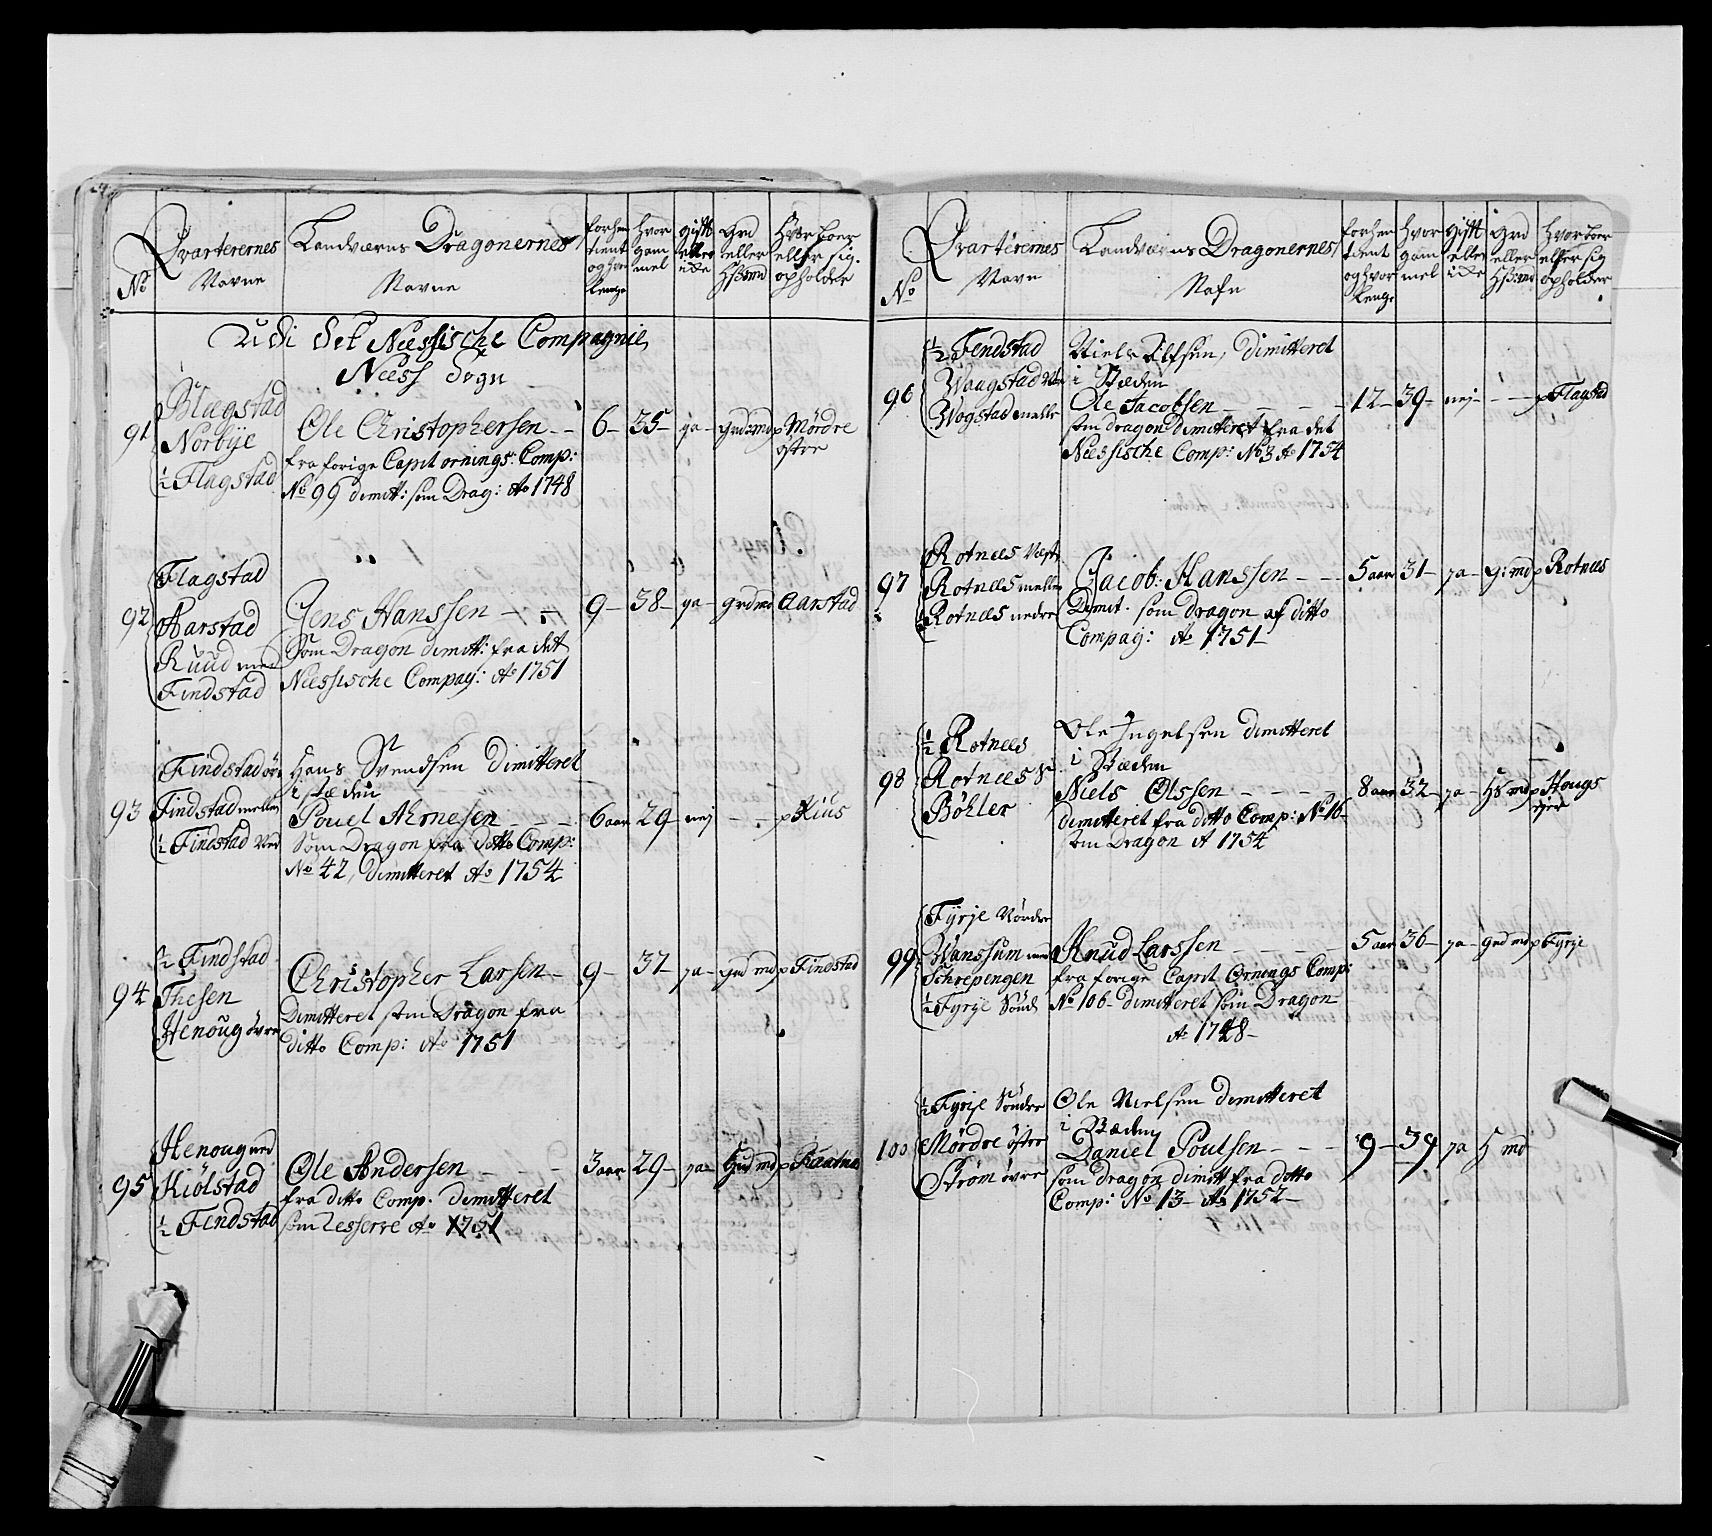 No
Qvarterernes
Navne
Landværns Dragonernes
Navne
forhen
tient
og hvor
lenge
Hvor
gam
mel
gift
eller
ikke
Grd
eller
Hßmd
Hvor boer
eller sig
opholder
Udi det Neessische Compagnie
Neess Sogn
91
Blegstad
Norbÿe
½ Flagstad
Ole Christophersen - -
fra forige Capit ornings: Comp:
No 99 dimitt: som Drag: Ao 1748
6 - 35 - ja - grdmd p Mördre
öster
92
Flagstad
Aarstad
Ruud
Findstad
Jens Hanssen - -
Som Dragon dimitt: fra det
Neessische Compag: Ao 1751
9 - 38 - ja - grdmd Aarstad
93
Findstad ör
Findstad mellem
½ Findstad Ned
Hans Svendsen Dimitteret
i stæden
Pouel Arnesen - - -
Som Dragon fra ditto Comp:
No 42, Dimitteret Ao 1754
6 aar 29 - nej - - p Kius
94
½ Findstad
Thesen
Henoug övre
Christopher Larsen -
Dimitteret som Dragon fra
ditto Comp: Ao 1751
9 - 37 - ja - grd md p Findstad
95
Henoug ned
Kiölstad
½ Fendstad
Ole Andersen - - -
fra ditto Comp. dimitteret
som resserve Ao 1751
3 aar 29 - ja - md p
No
Qvarterernes
Navn
Landværns Dragonernes
Nafn
forhen
tient
og hvor
lenge
Hvor
gam
mel
gift
eller
ikke
Grd
eller
Hßmd
Hvor boer
eller sig
opholder
96
½ Fendstad
Waagstad
Wogstad melle
Niels Alfsen, dimitteret
i Stæden
Ole Jacobsen - - - -
som dragon dimitteret fra det
Neessische Comp: No 3 Ao 1754
12 - 39 - nej - - - p Flagstad
97
Rotnees Væst
Rotnees mellem
½ Rotnees nedre
Jacob Hanssen - -
Dimit. som dragon af ditto
Compag: Ao 1751
5 aar 31 - ja - g: md p Rotnees
98
½ Rotnees
Rotnees
Böhler
Ole Ingelsen dimitteret
i Stæden
Niels Olssen - - - -
dimitteret fra ditto Comp: No 16
som Dragon A 1754
8 aar 32 - ja - Hß md p Hougs
99
Fyrje Nördre
Wanssum
Schrepengen
½ Fyrje Sönd
Knud Larssen - - - -
fra forige Capit Ornings Comp:
No 106 - dimitteret som Dragon
Ao 1748 -
5 aar 36 - ja - grd md p Fyrje
100
½ Fyrje Söndre
Mördre öster
Ström övre
Ole Nielsen dimitteret
i Stæden
Daniel Poulsen - - -
som dragon dimitt fra ditto
Comp: No 13 - Ao 1752 -
9 - 39 ja H md